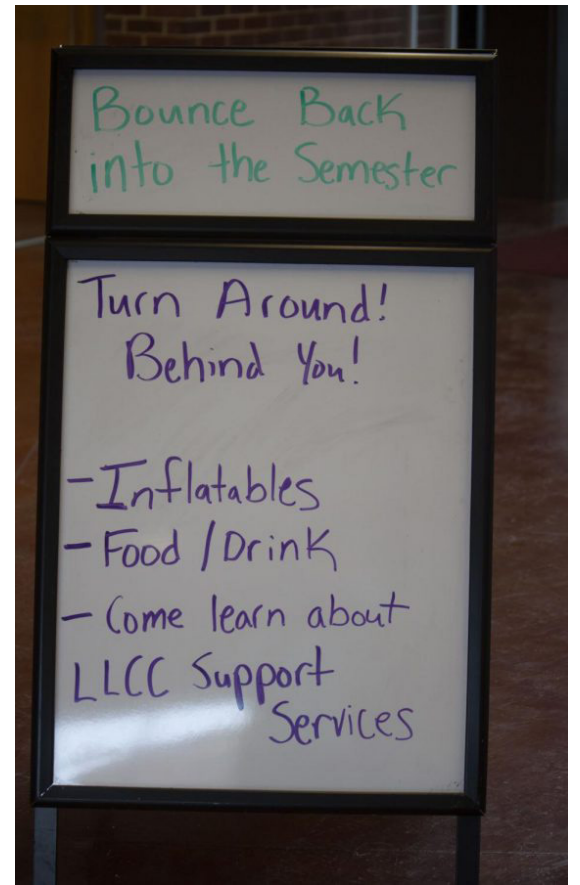 Bounce Back
into the Semester
Turn Around!
Behind You!
- Inflatables
- Food / Drink
- Come learn about
LLCC Support
Services